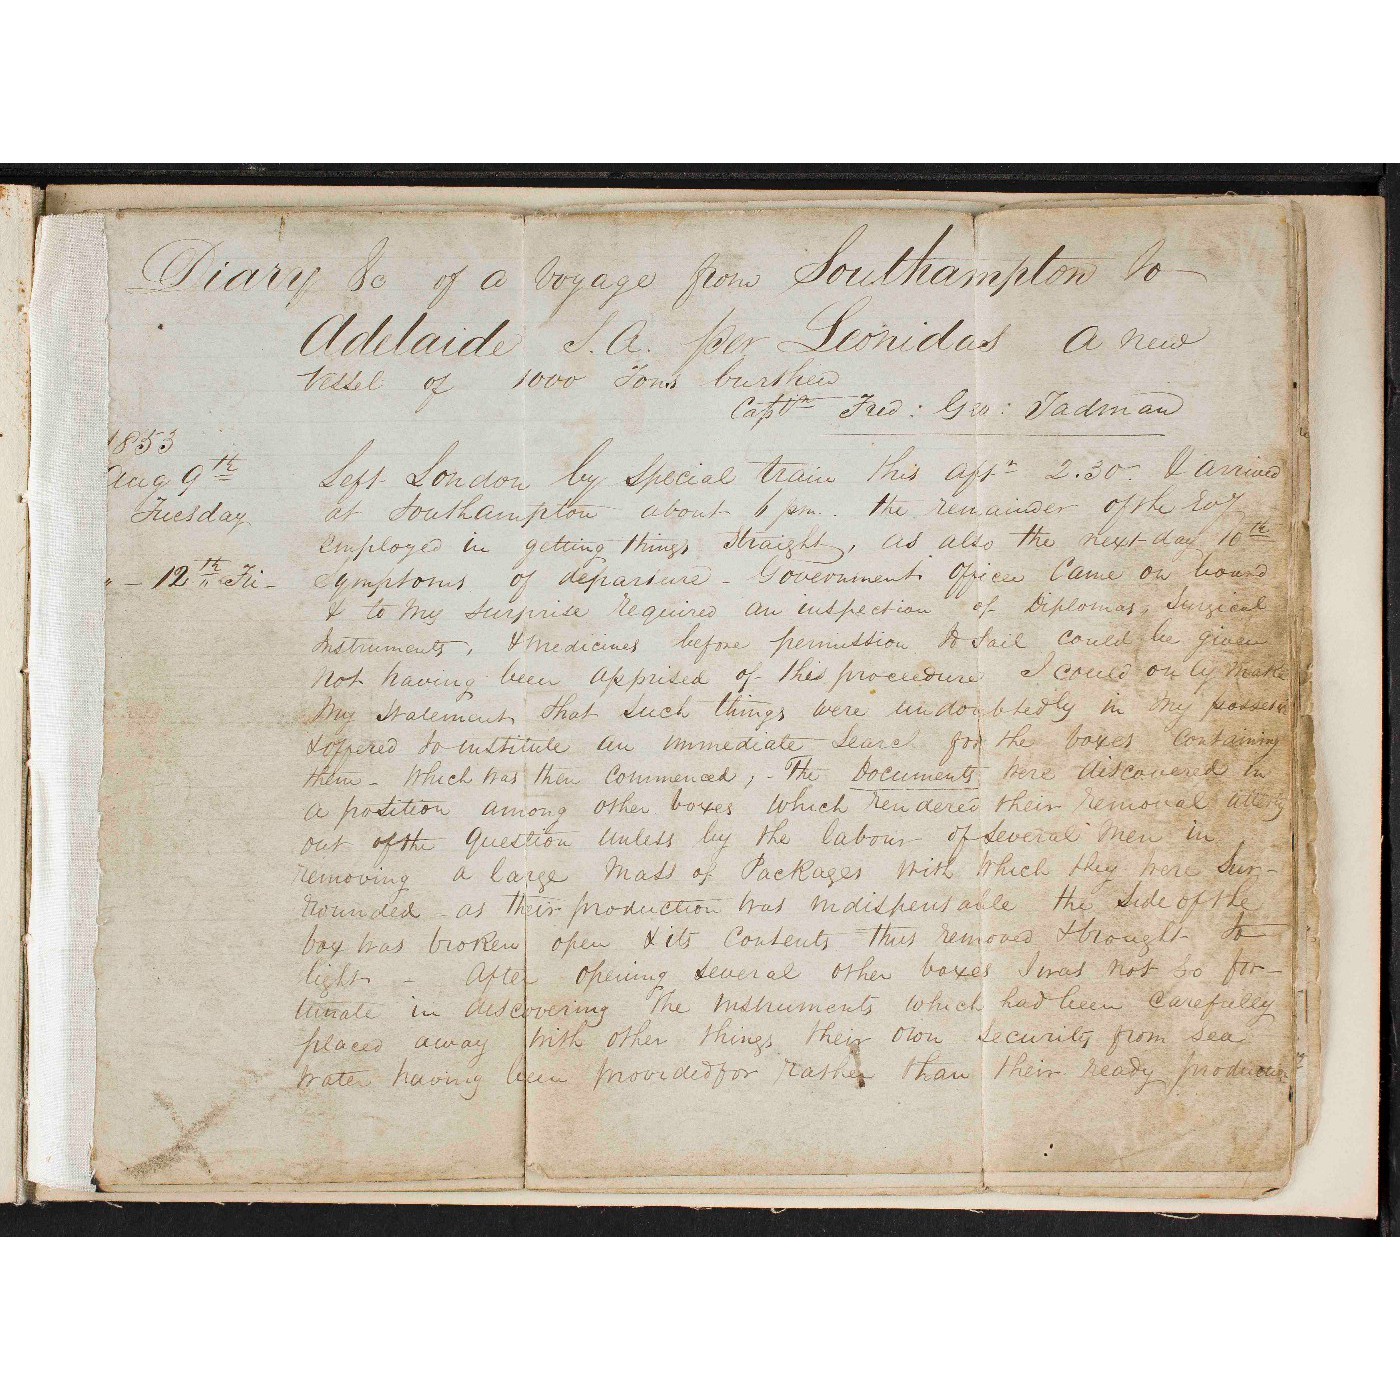 Diary &c of a Voyage from Southampton to
Adelaide S.A. per Leonidas a new
Vessel of 1000 Tons burthen
Captn Fred: Geo: Tadman
1853
Aug 9th Left London by special train this aftn 2.30 & arrived
Tuesday at Southampton about 6 pm. the remainder of the Evg
employed in getting things straight, as also the next day 10th
" - 12th " Fri - Symptoms of departure - Government Officer Came on board
& to my surprise required an inspection of Diplomas, Surgical
Instruments, & Medicines before permission to Sail could be given
not having been apprised of this proceedure I could only make
My statement that such things were undoubtedly in my possesn
& offered to institute an immediate search for the boxes containing
them - which was then commenced, - The Documents were discovered in
a position among other boxes which rendered their removal utterly
out of the question unless by the labour of several men in
removing a large Mass of Packages with which they were Sur-
rounded - as their production was indispensable the side of the
box was broken open & its contents thus removed & brought to
light - After opening several other boxes I was not so for-
tunate in discovering the instruments which had been carefully
placed away with other things their own security from sea
water having been provided for rather than their ready production